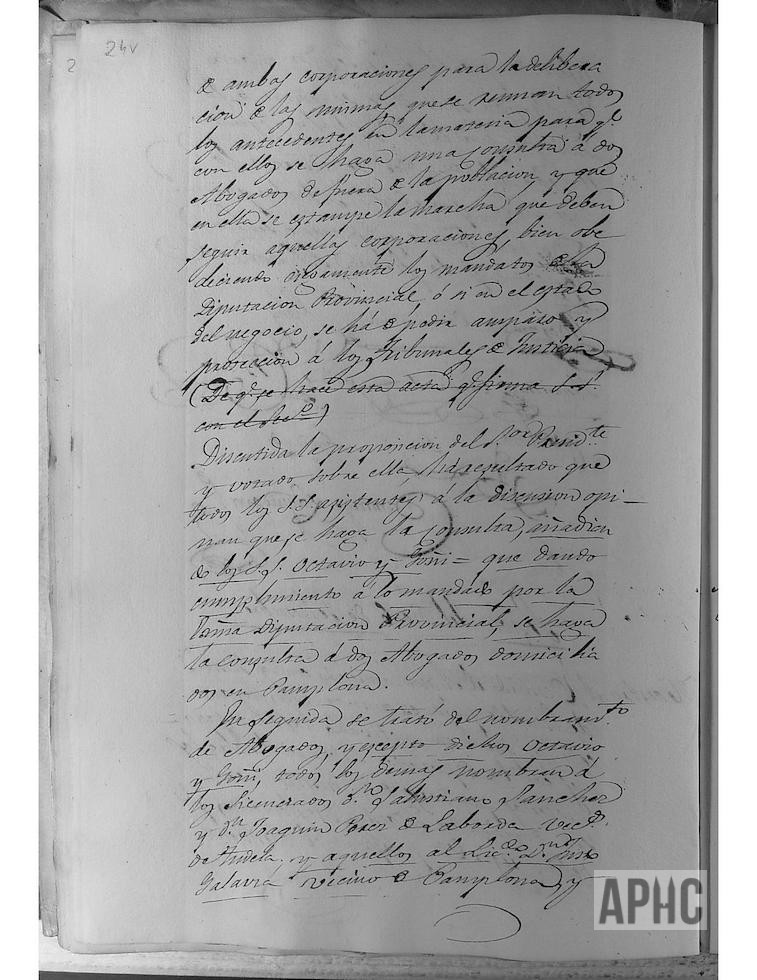 24v
2
de ambas corporaciones para la delibera
cion de las mismas, que se reunan todos
los antecedentes en la materia para qe.
con ellos se haga una consulta á dos
Abogados de fuera de la poblacion y que
en ella se estampe la marcha que deben
seguir aquellas corporaciones, bien obe
deciendo ciegamente los mandatos de la
Diputacion Provincial, ó si en el estado
del negocio, se há de pedir amparo y
proteccion á los Tribunales de Justicia
(De qe. se hace esta acta qe. firma S.S.
con el Sec.o)
Discutida la proposicion del S.or Presid.te
y votado sobre ella, há resultado que
todos los S.S. asistentes á la discusion opi-
nan que se haga la consulta, añadien
do los S.S. Octavio y Goñi = que dando
cumplimiento á lo mandado por la
Exma Diputacion Provincial, se haga
la consulta á dos Abogados domicilia
dos en Pamplona.
En seguida se trató del nombram.to
de Abogados, y escepto dichos Octavio
y Goñi, todos los demas nombran á
los licenciados D.n Salustiano Sanchez
y D.n Joaquin Perez de Laborda vec.s
de Tudela, y aquellos al Lic.do D.n Justo
Galarza vecino de Pamplona, y
APHC